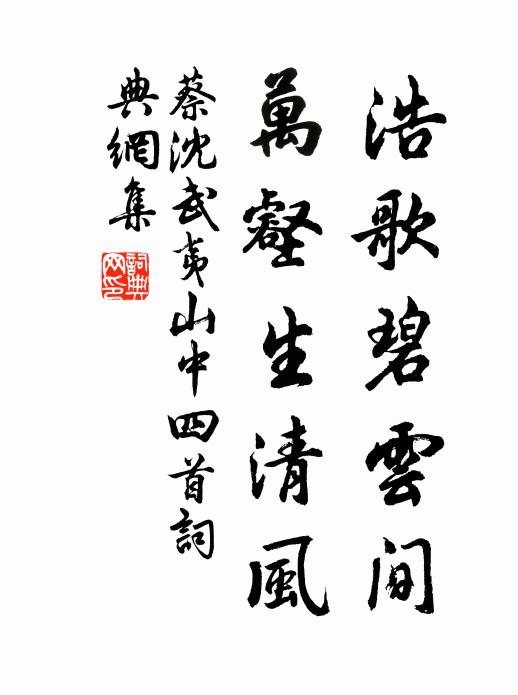 浩歌碧雲間
萬壑生清風
蔡沈武夷山中四首詞
典網集
詞典網印